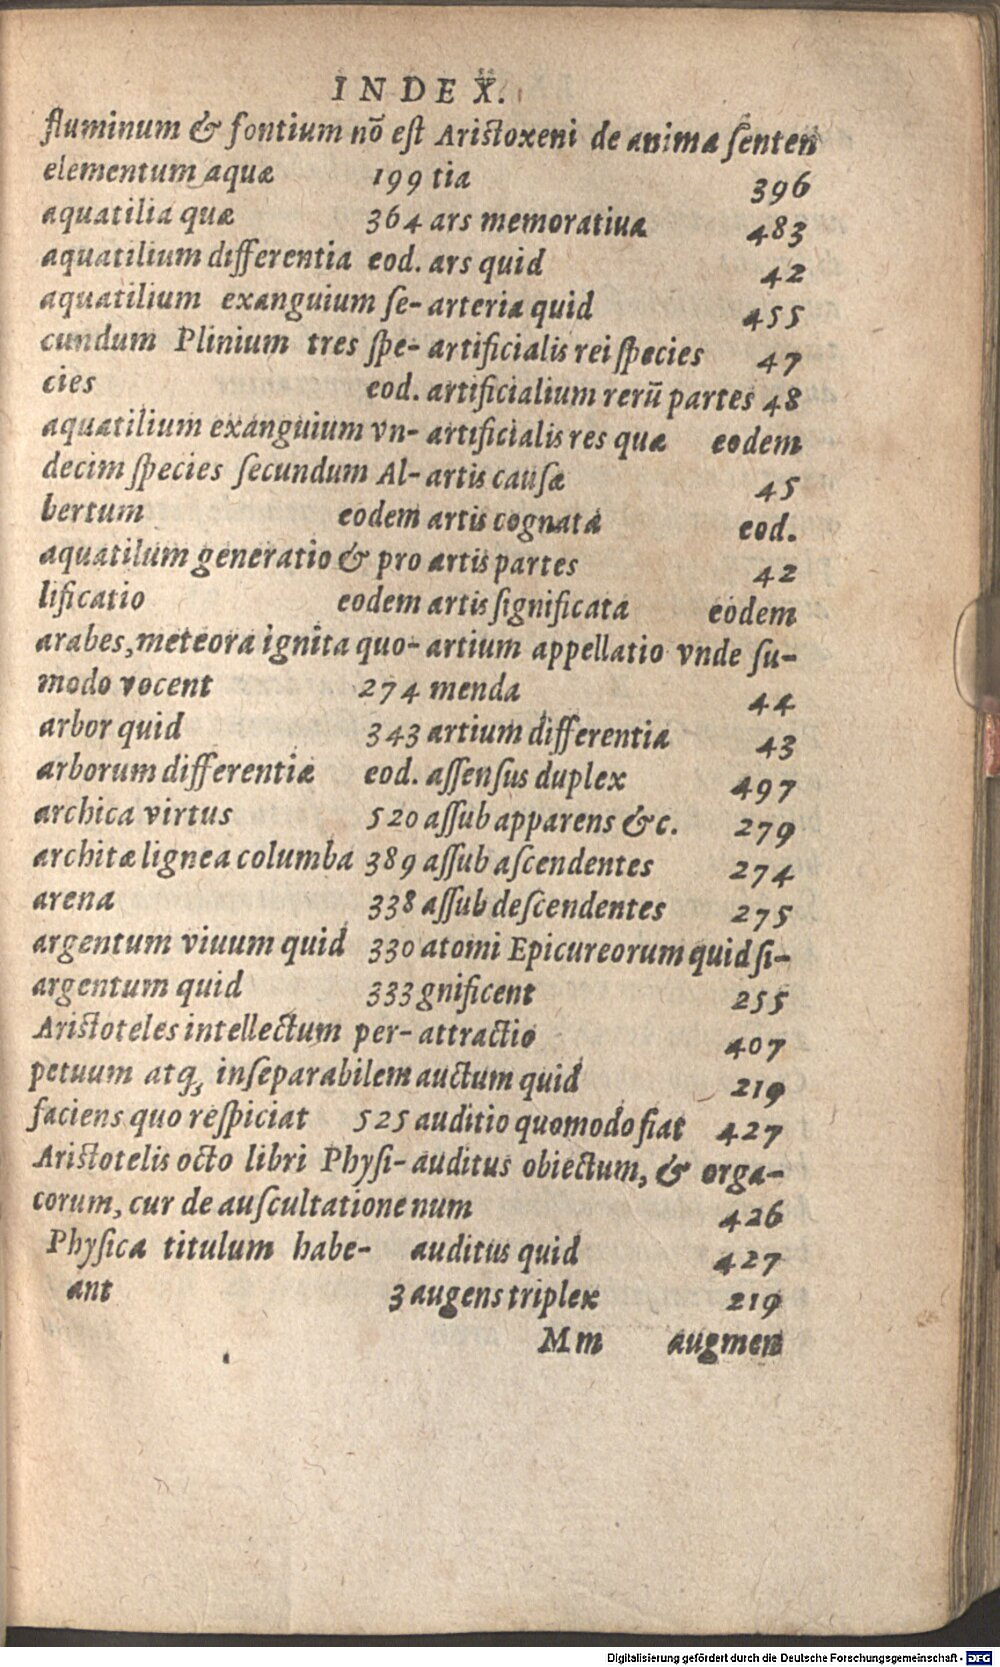 INDEX.
fluminum & fontium nō est
elementum aquæ 199
aquatilia quæ 364
aquatilium differentia eod.
aquatilium exanguium se-
cundum Plinium tres spe-
cies eod.
aquatilium exanguium vn-
decim species secundum Al-
bertum eodem
aquatilum generatio & pro
lificatio eodem
arabes, meteora ignita quo-
modo vocent 274
arbor quid 343
arborum differentiæ eod.
archica virtus 520
architæ lignea columba 389
arena 338
argentum viuum quid 330
argentum quid 333
Aristoteles intellectum per-
petuum atq; inseparabilem
faciens quo respiciat 525
Aristotelis octo libri Physi-
corum, cur de auscultatione
Physica titulum habe-
ant 3
Aristoxeni de anima senten
tia 396
ars memoratiua 483
ars quid 42
arteria quid 455
artificialis rei species 47
artificialium rerū partes 48
artificialis res quæ eodem
artis causæ 45
artis cognata eod.
artis partes 42
artis significata eodem
artium appellatio vnde su-
menda 44
artium differentia 43
assensus duplex 497
assub apparens &c. 279
assub ascendentes 274
assub descendentes 275
atomi Epicureorum quid si-
gnificent 255
attractio 407
auctum quid 219
auditio quomodo fiat 427
auditus obiectum, & orga-
num 426
auditus quid 427
augens triplex 219
Mm augmen
Digitalisierung gefördert durch die Deutsche Forschungsgemeinschaft - DFG